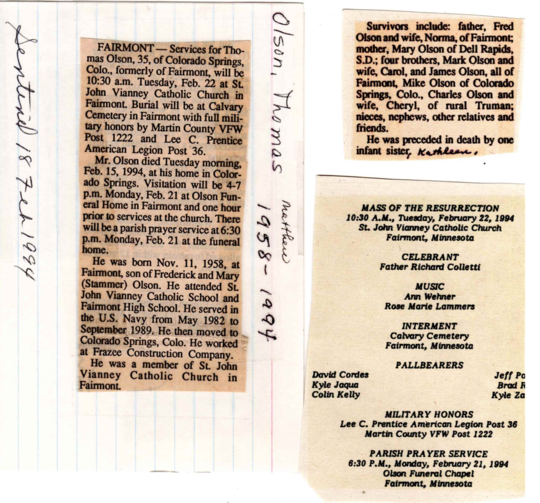 Sentinel 18 Feb 1994
FAIRMONT — Services for Tho-
mas Olson, 35, of Colorado Springs,
Colo., formerly of Fairmont, will be
10:30 am. Tuesday, Feb. 22 at St.
John Vianney Catholic Church in
Fairmont. Burial will be at Calvary
Cemetery in Fairmont with full mili-
tary honors by Martin County VFW
Post 1222 and Lee C. Prentice
American Legion Post 36.
Mr. Olson died Tuesday morning,
Feb. 15, 1994, at his home in Color-
ado Springs. Visitation will be 4-7
p.m. Monday, Feb. 21 at Olson Fun-
eral Home in Fairmont and one hour
prior to services at the church. There
will be a parish prayer service at 6:30
p.m. Monday, Feb. 21 at the funeral
home.
He was born Nov. 11, 1958, at
Fairmont, son of Frederick and Mary
(Stammer) Olson. He attended St.
John Vianney Catholic School and
Fairmont High School. He served in
the U.S. Navy from May 1982 to
September 1989. He then moved to
Colorado Springs, Colo. He worked
at Frazee Construction Company.
He was a member of St. John
Vianney Catholic Church in
Fairmont.
Olson, Thomas
Matthew
1958-1994
Survivors include: father, Fred
Olson and wife, Norma, of Fairmont;
mother, Mary Olson of Dell Rapids,
S.D.; four brothers, Mark Olson and
wife, Carol, and James Olson, all of
Fairmont, Mike Olson of Colorado
Springs, Colo., Charles Olson and
wife, Cheryl, of rural Truman;
nieces, nephews, other relatives and
friends.
He was preceded in death by one
infant sister, Kathleen.
MASS OF THE RESURRECTION
10:30 A.M., Tuesday, February 22, 1994
St. John Vianney Catholic Church
Fairmont, Minnesota
CELEBRANT
Father Richard Colletti
MUSIC
Ann Wehner
Rose Marie Lammers
INTERMENT
Calvary Cemetery
Fairmont, Minnesota
PALLBEARERS
David Cordes Jeff Po
Kyle Jaqua Brad R
Colin Kelly Kyle Za
MILITARY HONORS
Lee C. Prentice American Legion Post 36
Martin County VFW Post 1222
PARISH PRAYER SERVICE
6:30 P.M., Monday, February 21, 1994
Olson Funeral Chapel
Fairmont, Minnesota